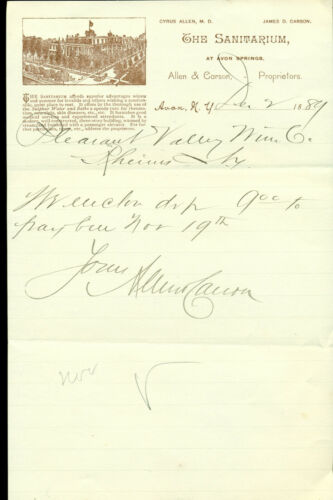 CYRUS ALLEN, M. D. JAMES D. CARSON.
THE SANITARIUM,
AT AVON SPRINGS.
Allen & Carson, Proprietors.
THE SANITARIUM affords superior advantages winter
and summer for invalids and others wishing a comfort-
able place to rest. It offers by the thorough use of
the Sulphur Water and Baths a speedy cure for rheuma-
tism, neuralgia, skin diseases, etc., etc. It furnishes good
medical service and experienced attendants. It is a
modern, well constructed, three-story building, warmed by
steam and furnished with a passenger elevator. For fur-
ther particulars, terms, etc., address the proprietors.
Avon, N. Y. Dec 2 1889
Pleasant Valley Wine Co.
Rheims N.Y.
We enclose dft 9 00 to
pay bill Nov 19th
Yours
Allen & Carson